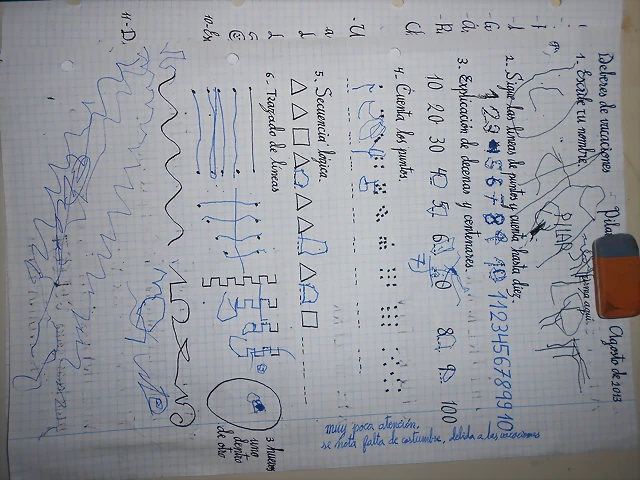 Deberes de vacaciones - Pilar Agosto de 2013
1. Escribe tu nombre.
PILAR
2. Sigue las líneas de puntos y cuenta hasta diez.
1 2 3 4 5 6 7 8 9 10 1 1 2 3 4 5 6 7 8 9 10
3. Explicación de decenas y centenares.
10 20 30 40 50 60 70 80 90 100
4. Cuenta los puntos.
5. Secuencia lógica
6. Trazado de líneas
3 huevos
uno
dentro
de otro
muy poca atención.
se nota falta de costumbre, debida a las vacaciones
10-Ex
11-D